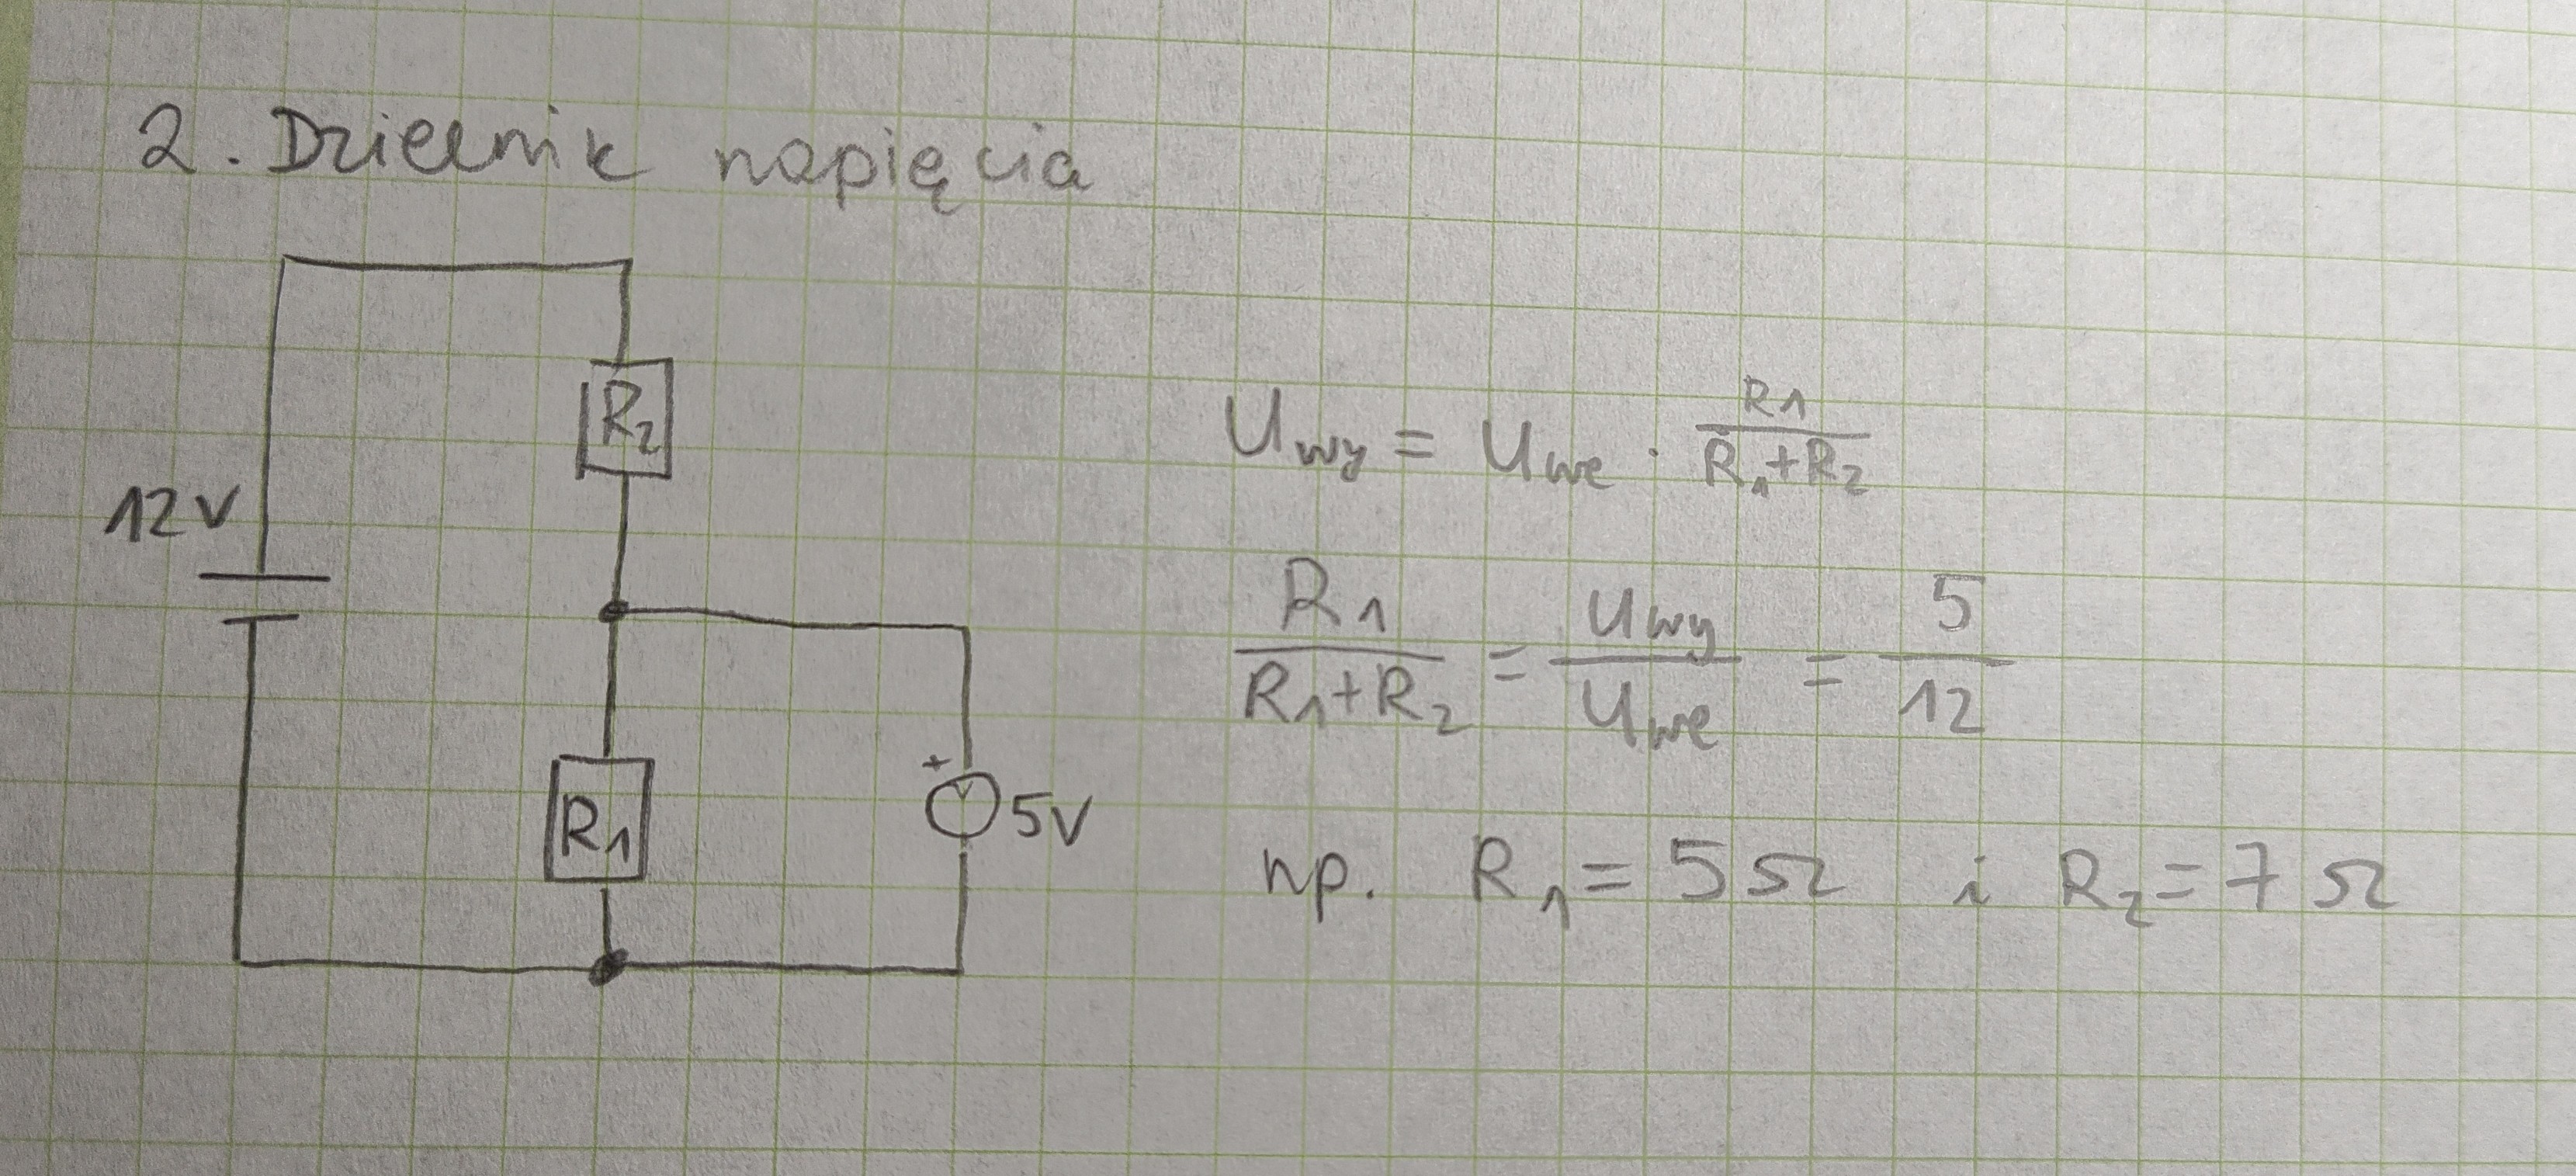 2. Dzielnik napięcia
R₂
12V
R₁
+
V
5V
Uwy = Uwe · R₁/(R₁+R₂)
R₁/(R₁+R₂) = Uwy/Uwe = 5/12
np. R₁ = 5Ω i R₂ = 7Ω